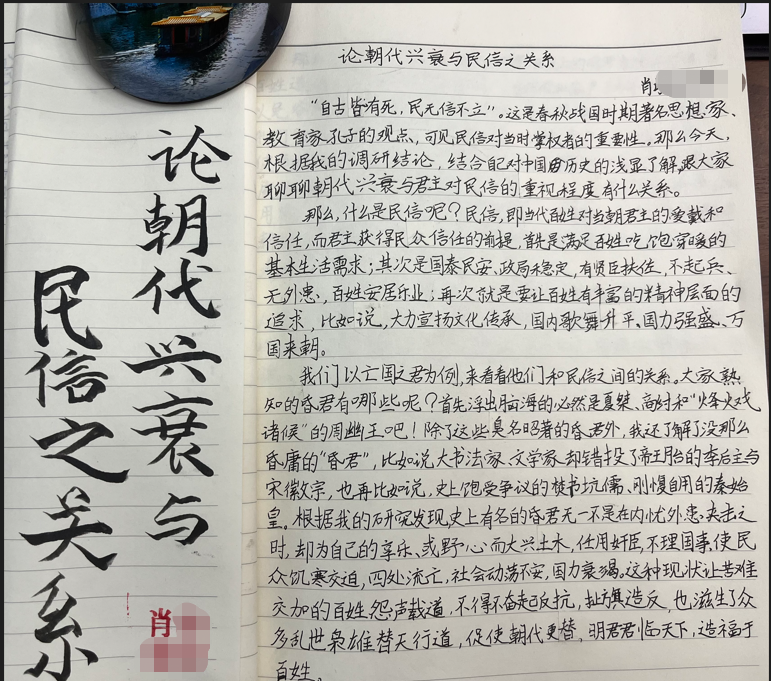 论朝代兴衰与
民信之关系
肖
论朝代兴衰与民信之关系
肖
“自古皆有死,民无信不立”。这是春秋战国时期著名思想家、
教育家孔子的观点,可见民信对当时掌权者的重要性。那么今天,
根据我的调研结论,结合自己对中国历史的浅显了解,跟大家
聊聊朝代兴衰与君主对民信的重视程度有什么关系。
那么,什么是民信呢?民信,即当代百姓对当朝君主的爱戴和
信任,而君主获得民众信任的前提,首先是满足百姓吃饱穿暖的
基本生活需求;其次是国泰民安、政局稳定,有贤臣扶佐,不起兵、
无外患,百姓安居乐业;再次就是要让百姓有丰富的精神层面的
追求,比如说,大力宣扬文化传承,国内歌舞升平、国力强盛、万
国来朝。
我们以亡国之君为例,来看看他们和民信之间的关系。大家熟
知的昏君有哪些呢?首先浮出脑海的必然是夏桀、商纣和“烽火戏
诸侯”的周幽王吧!除了这些臭名昭著的昏君外,我还了解了没那么
昏庸的“昏君”,比如说大书法家、文学家却错投了帝王胎的李后主与
宋徽宗,也再比如说,史上饱受争议的焚书坑儒、刚愎自用的秦始
皇。根据我的研究发现,史上有名的昏君无一不是在内忧外患夹击之
时,却为自己的享乐、或野心而大兴土木,任用奸臣,不理国事,使民
众饥寒交迫,四处流亡,社会动荡不安,国力衰竭。这种现状让苦难
交加的百姓怨声载道,不得不奋起反抗,扯旗造反,也滋生了众
多乱世枭雄替天行道,促使朝代更替,明君君临天下,造福于
百姓。